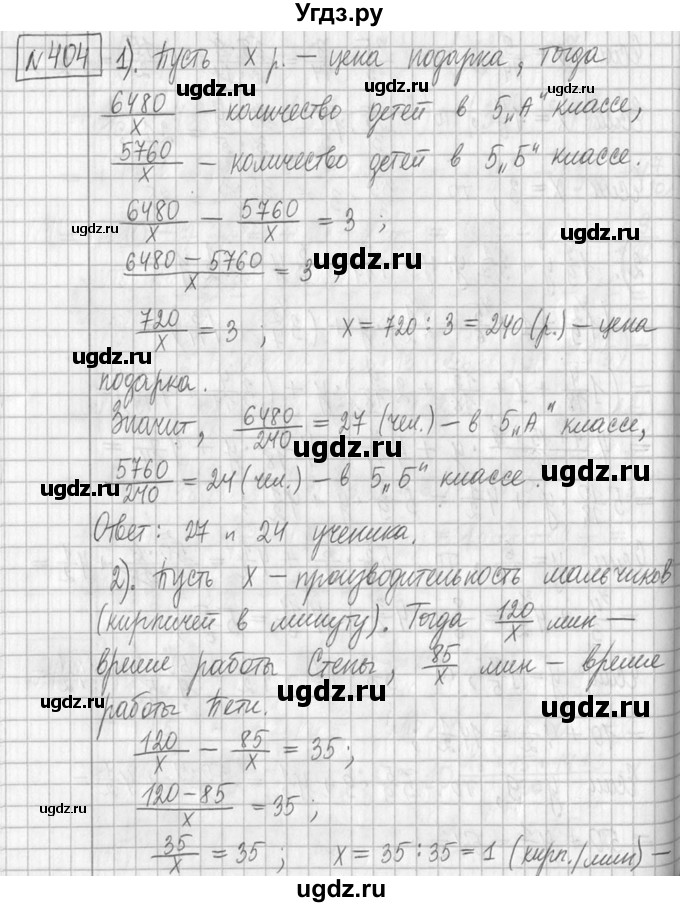 Угдз.ру
№404 1). Пусть x р. – цена подарка, тогда
6480/x – количество детей в 5„А" классе,
5760/x – количество детей в 5„Б" классе.
6480/x – 5760/x = 3 ;
(6480 – 5760)/x = 3 ;
720/x = 3 ; x = 720 : 3 = 240 (р.) – цена
подарка.
Значит, 6480/240 = 27 (чел.) – в 5„А" классе,
5760/240 = 24 (чел.) – в 5„Б" классе.
Ответ: 27 и 24 ученика.
2). Пусть x – производительность мальчиков
(кирпичей в минуту). Тогда 120/x мин –
время работы Степы, 85/x мин – время
работы Пети.
120/x – 85/x = 35;
(120 – 85)/x = 35;
35/x = 35 ; x = 35 : 35 = 1 (кирп./мин) –
ugdz.ru